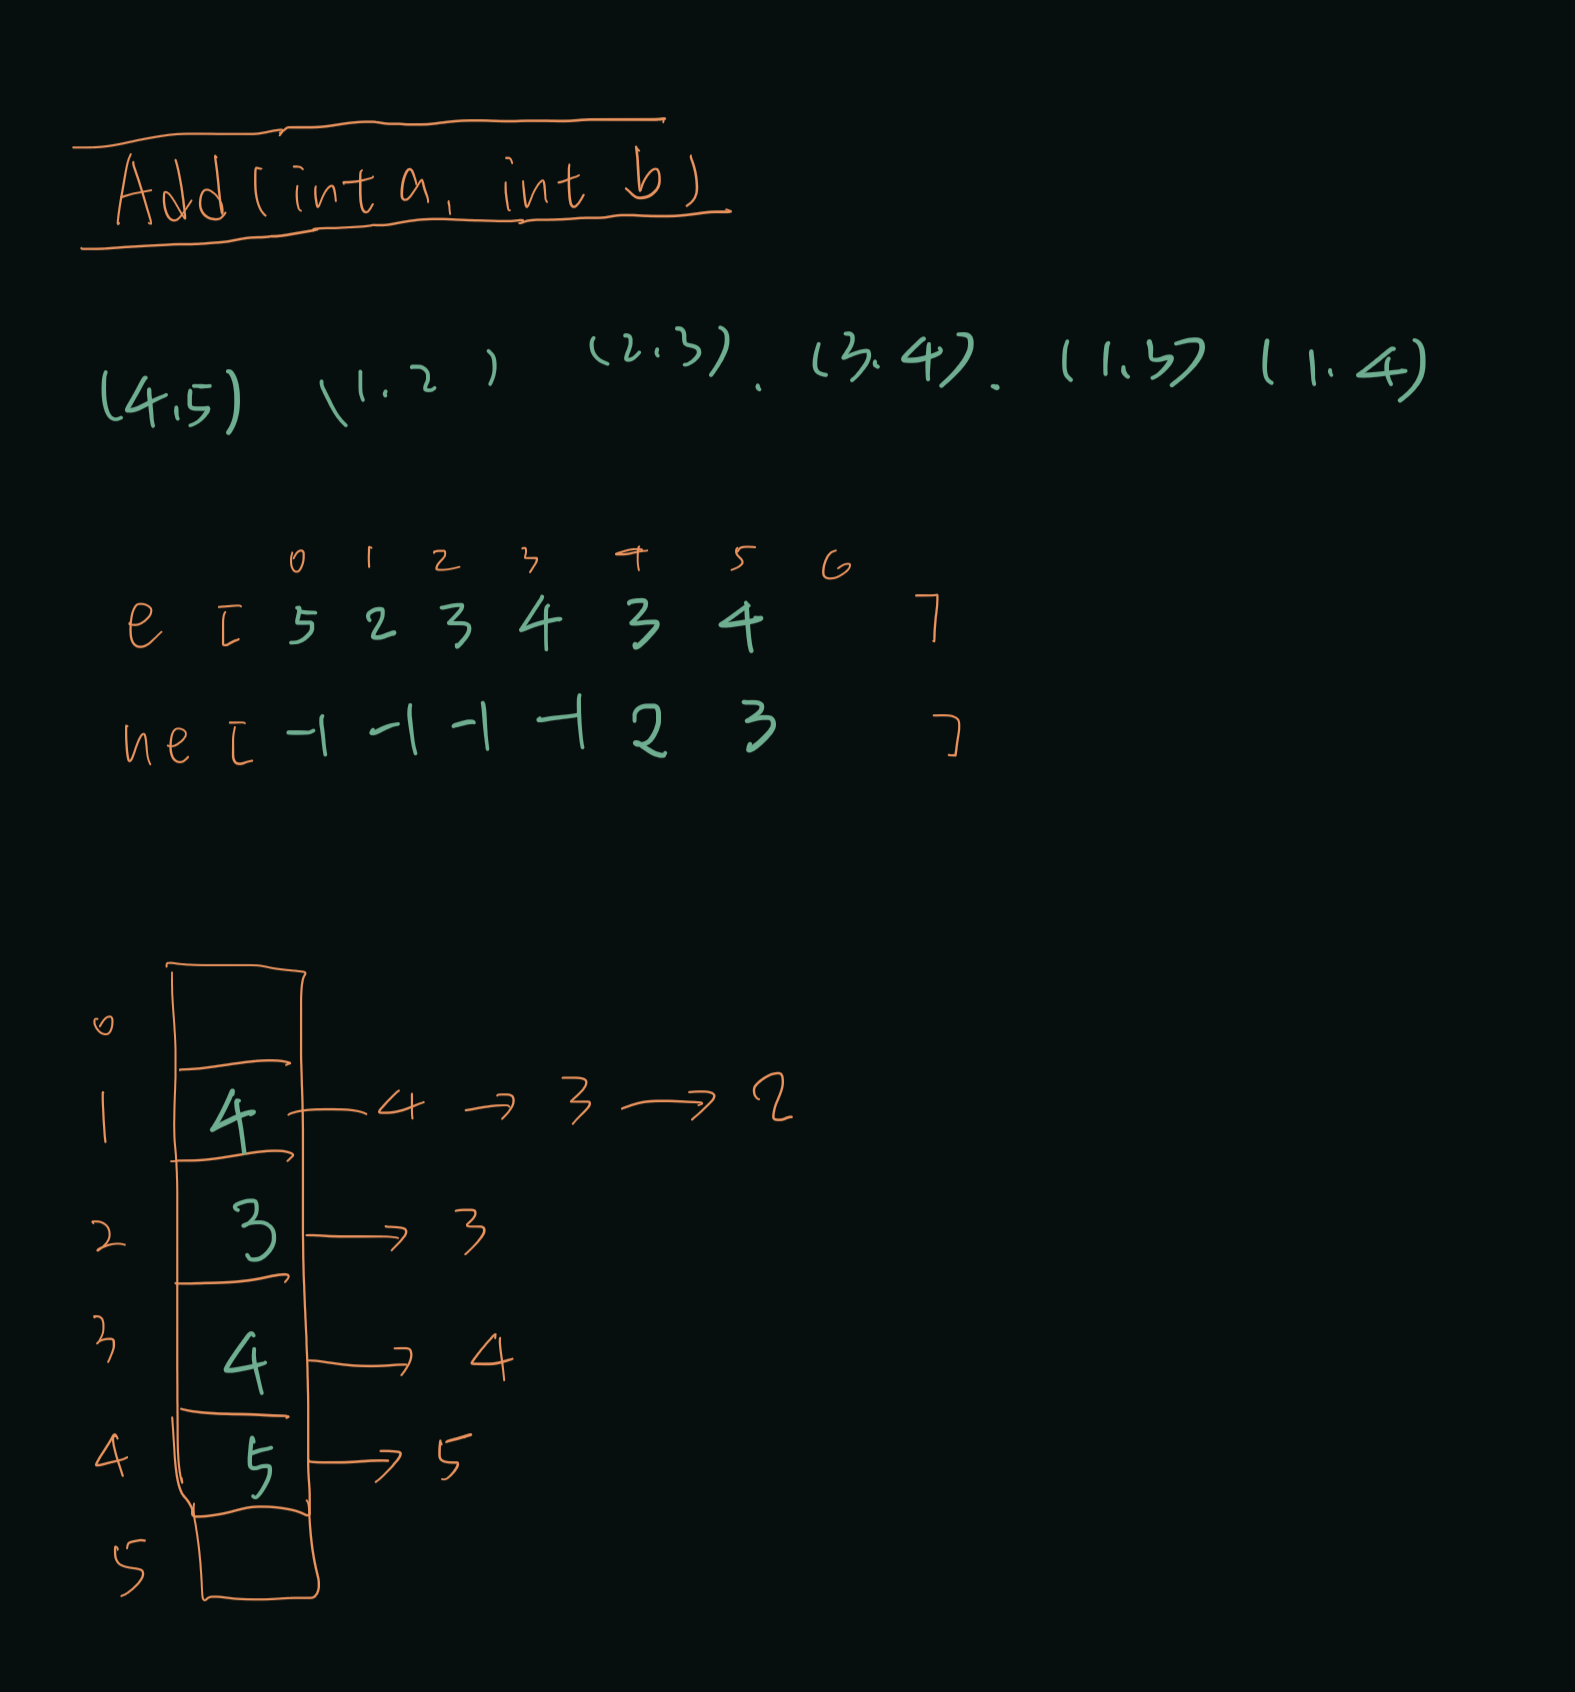 Add(int a, int b)
(4.5) (1.2) (2.3). (3.4). (1.3) (1.4)
0 1 2 3 4 5 6
e [ 5 2 3 4 3 4 ]
ne [ -1 -1 -1 -1 2 3 ]
0
1 4 — 4 → 3 → 2
2 3 → 3
3 4 → 4
4 5 → 5
5